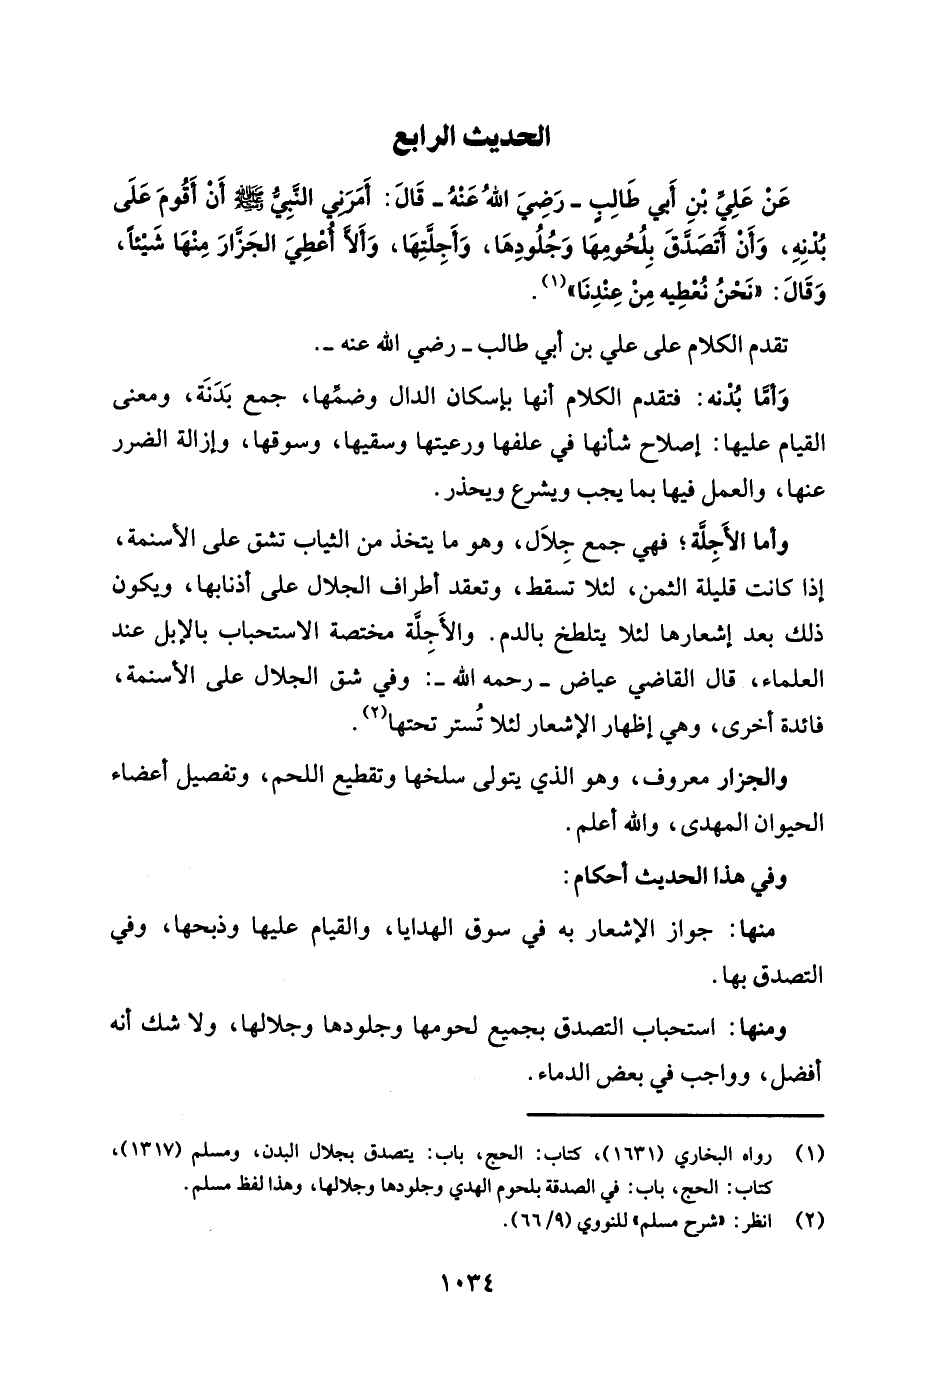 الحديث الرابع
عَنْ عَلِيِّ بْنِ أَبي طَالِبٍ ـ رَضِيَ اللهُ عَنْهُ ـ قَالَ: أَمَرَنِي النَّبِيُّ ﷺ أَنْ أَقُومَ عَلَى
بُدْنِهِ، وَأَنْ أَتَصَدَّقَ بِلُحُومِهَا وَجُلُودِهَا، وَأَجِلَّتِهَا، وَأَلاَّ أُعْطِيَ الجَزَّارَ مِنْهَا شَيْئاً،
وَقَالَ: «نَحْنُ نُعْطِيه مِنْ عِنْدِنَا»(١).
تقدم الكلام على علي بن أبي طالب ـ رضي الله عنه ـ.
وَأمَّا بُدْنه: فتقدم الكلام أنها بإسكان الدال وضمِّها، جمع بَدَنَة، ومعنى
القيام عليها: إصلاح شأنها في علفها ورعيتها وسقيها، وسوقها، وإزالة الضرر
عنها، والعمل فيها بما يجب ويشرع ويحذر.
وأما الأَجِلَّة؛ فهي جمع جِلاَل، وهو ما يتخذ من الثياب تشق على الأسنمة،
إذا كانت قليلة الثمن، لئلا تسقط، وتعقد أطراف الجلال على أذنابها، ويكون
ذلك بعد إشعارها لئلا يتلطخ بالدم. والأَجِلَّة مختصة الاستحباب بالإبل عند
العلماء، قال القاضي عياض ـ رحمه الله ـ: وفي شق الجلال على الأسنمة،
فائدة أخرى، وهي إظهار الإشعار لئلا تُستر تحتها(٢).
والجزار معروف، وهو الذي يتولى سلخها وتقطيع اللحم، وتفصيل أعضاء
الحيوان المهدى، والله أعلم.
وفي هذا الحديث أحكام:
منها: جواز الإشعار به في سوق الهدايا، والقيام عليها وذبحها، وفي
التصدق بها.
ومنها: استحباب التصدق بجميع لحومها وجلودها وجلالها، ولا شك أنه
أفضل، وواجب في بعض الدماء.
(١) رواه البخاري (١٦٣١)، كتاب: الحج، باب: يتصدق بجلال البدن، ومسلم (١٣١٧)،
كتاب: الحج، باب: في الصدقة بلحوم الهدي وجلودها وجلالها، وهذا لفظ مسلم.
(٢) انظر: «شرح مسلم» للنووي (٩/ ٦٦).
١٠٣٤